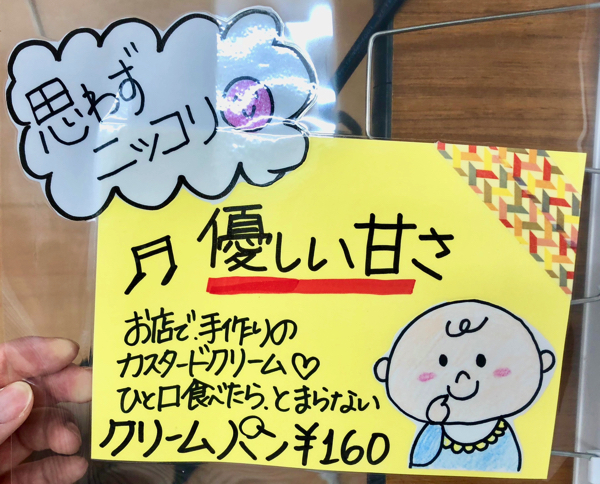 思わず
ニッコリ
♬優しい甘さ
お店で、手作りの
カスタードクリーム♡
ひと口食べたら、とまらない
クリームパン¥160